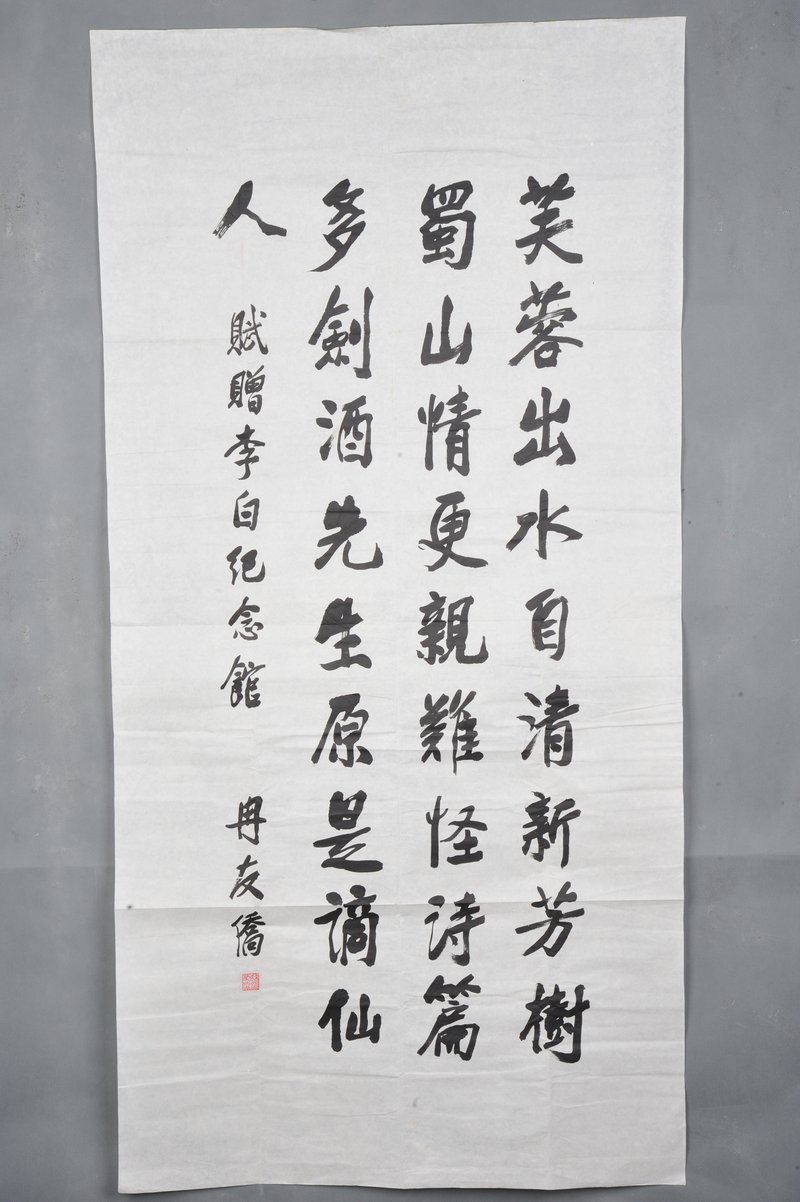 芙蓉出水自清新芳樹
蜀山情更親難怪诗篇
多劍酒先生原是謫仙
人
賦贈李白纪念館 冉友僑